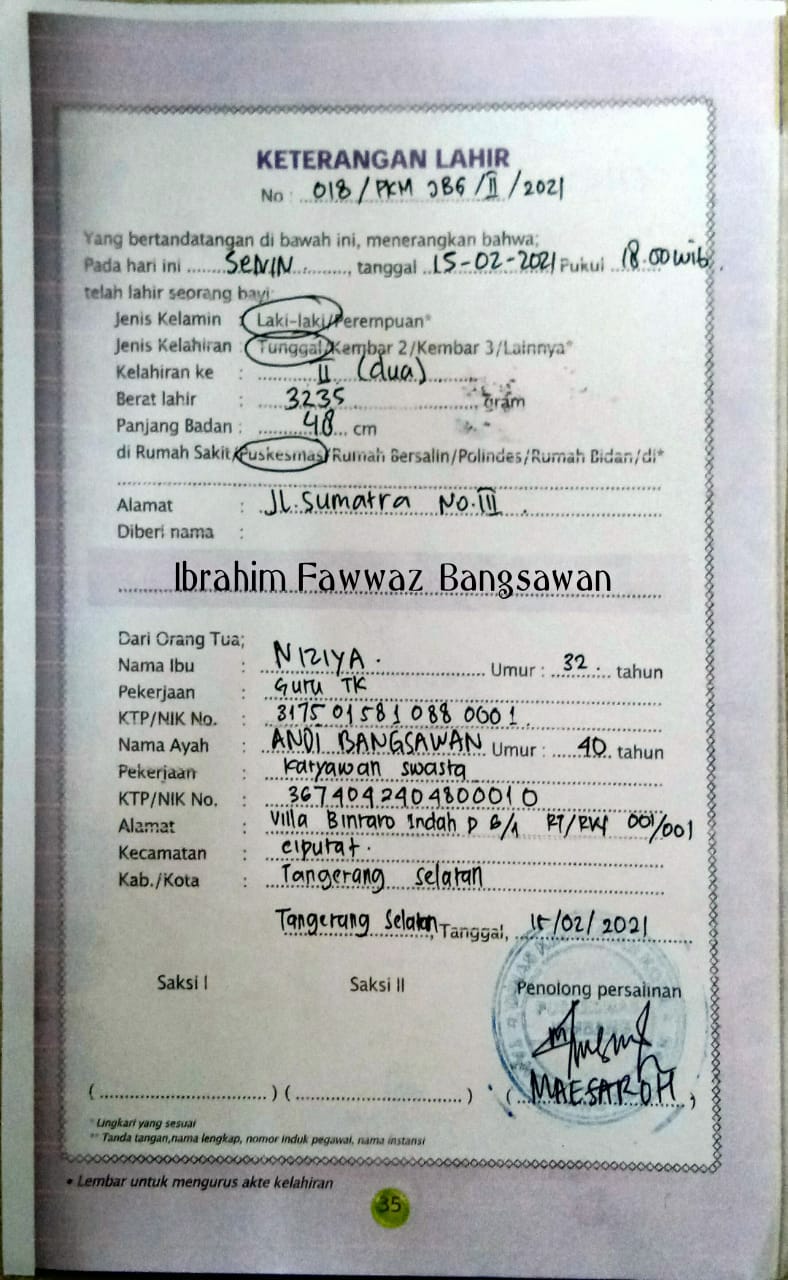 KETERANGAN LAHIR
No : 018/PKM JBG/II/2021
Yang bertandatangan di bawah ini, menerangkan bahwa;
Pada hari ini SENIN, tanggal 15-02-2021 Pukul 18.00 wib.
telah lahir seorang bayi:
Jenis Kelamin : Laki-laki/Perempuan*
Jenis Kelahiran : Tunggal/Kembar 2/Kembar 3/Lainnya*
Kelahiran ke : II (dua)
Berat lahir : 3235 gram
Panjang Badan : 48 cm
di Rumah Sakit/Puskesmas/Rumah Bersalin/Polindes/Rumah Bidan/di*
Alamat : JL. Sumatra No. III
Diberi nama :
Ibrahim Fawwaz Bangsawan
Dari Orang Tua;
Nama Ibu : NIZIYA. Umur : 32 tahun
Pekerjaan : Guru TK
KTP/NIK No. : 3175 01581 088 0001.
Nama Ayah : ANDI BANGSAWAN Umur : 40 tahun
Pekerjaan : Karyawan swasta
KTP/NIK No. : 3674042404800010
Alamat : Villa Bintaro Indah D 6/1 RT/RW 001/001
Kecamatan : Ciputat.
Kab./Kota : Tangerang Selatan
Tangerang Selatan, Tanggal, 15/02/2021
Saksi I Saksi II Penolong persalinan
(..............................) (..............................) (MAESAROH)
* Lingkari yang sesuai
** Tanda tangan,nama lengkap, nomor induk pegawai, nama instansi
• Lembar untuk mengurus akte kelahiran
35